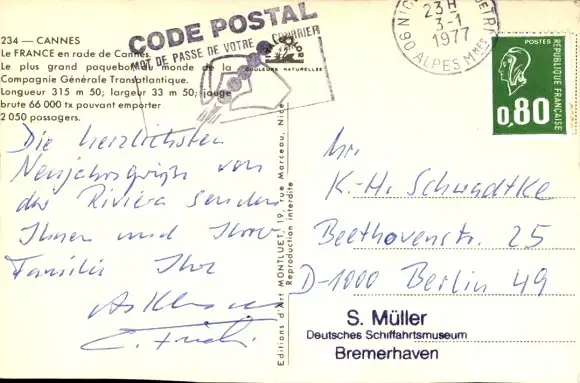 234 — CANNES
Le FRANCE en rade de Cannes.
Le plus grand paquebot du monde de la
Compagnie Générale Transatlantique.
Longueur 315 m 50; largeur 33 m 50; jauge
brute 66 000 tx pouvant emporter
2 050 passagers.
CODE POSTAL
MOT DE PASSE DE VOTRE COURRIER
COULEURS NATURELLES
23H
3-1
1977
06 ALPES MMES
POSTES
RÉPUBLIQUE FRANÇAISE
0,80
Die herzlichsten
Neujahrsgrüße von
der Riviera senden
Ihnen und Ihrer
Familie Ihr
Editions d'Art MONTLUET, 19, rue Marceau, Nice
Reproduction interdite
Hr.
K.-H. Schwadtke
Beethovenstr. 25
D-1000 Berlin 49
S. Müller
Deutsches Schiffahrtsmuseum
Bremerhaven